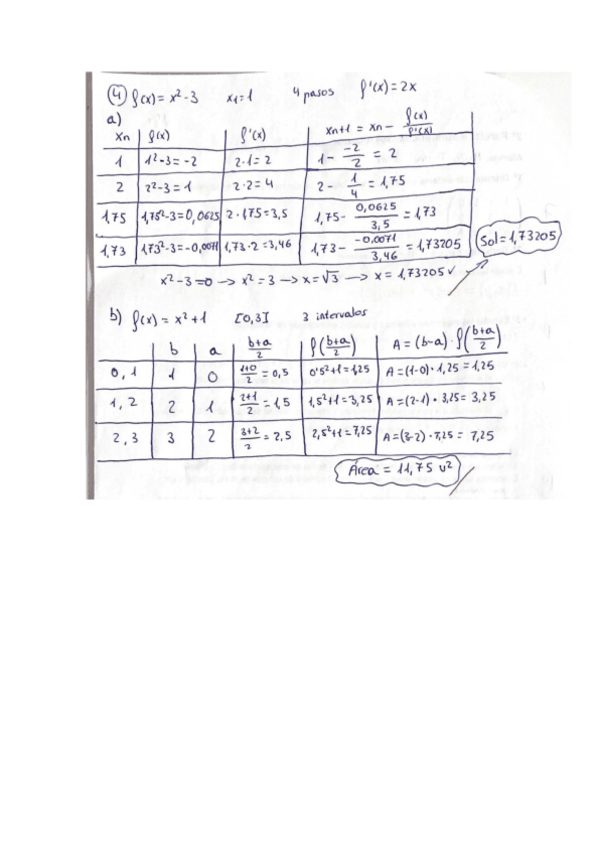 ④ f(x) = x²-3 x₁=1 4 pasos f'(x)=2x
a)
xn f(x) f'(x) xn+1 = xn - f(x)/f'(x)
1 1²-3=-2 2·1=2 1 - -2/2 = 2
2 2²-3=1 2·2=4 2 - 1/4 = 1,75
1,75 1,75²-3=0,0625 2·1,75=3,5 1,75 - 0,0625/3,5 = 1,73
1,73 1,73²-3=-0,0071 1,73·2=3,46 1,73 - -0,0071/3,46 = 1,73205
Sol=1,73205
x²-3=0 → x²=3 → x=√3 → x=1,73205 ✓
b) f(x) = x²+1 [0,3] 3 intervalos
b a b+a/2 f(b+a/2) A=(b-a)·f(b+a/2)
0,1 1 0 1+0/2=0,5 0'5²+1=1,25 A=(1-0)·1,25=1,25
1,2 2 1 2+1/2=1,5 1,5²+1=3,25 A=(2-1)·3,25=3,25
2,3 3 2 3+2/2=2,5 2,5²+1=7,25 A=(3-2)·7,25=7,25
Área = 11,75 u²